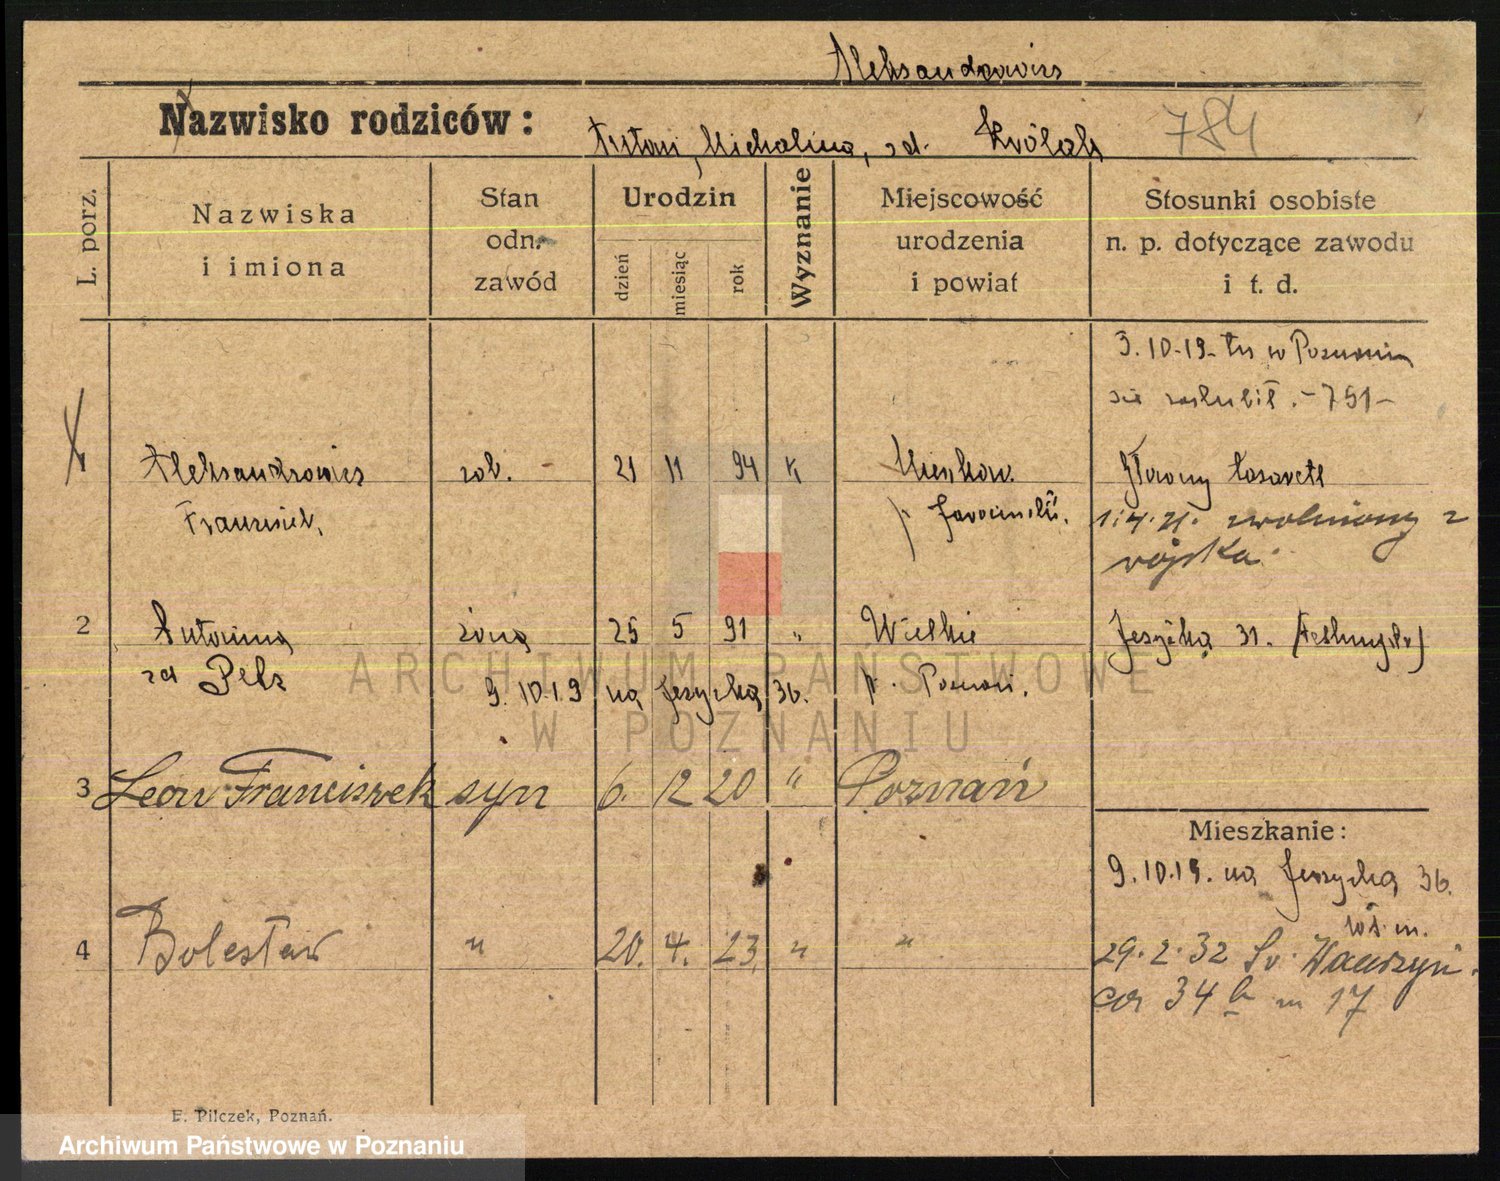 Aleksandrowicz
Nazwisko rodziców:
Michalina, zd. Królak 784
L. porz.
Nazwiska
i imiona
Stan
odn.
zawód
Urodzin
dzień
miesiąc
rok
Wyznanie
Miejscowość
urodzenia
i powiat
Stosunki osobiste
n. p. dotyczące zawodu
i t. d.
3.10-19- tu w Poznaniu
się zaślubił. -751-
1 Aleksandrowicz rob. 21 11 94 k
Franciszek,
p Jarociński.
1.4.21. zwolniony z
wojska.
2 Antonina żona 25 5 91 " Wielkie Jeżycka 31.
zd Pelz 9.10.19 na Jeżycką 36. p. Poznań.
3 Leon Franciszek syn 6. 12 20 " Poznań
Mieszkanie:
9.10.19. na Jeżycką 36.
4 Bolesław " 20. 4. 23 " "
29.2.32 Św. Wawrzyń-
ca 34 b m 17
E. Pilczek, Poznań.
ARCHIWUM PAŃSTWOWE
W POZNANIU
Archiwum Państwowe w Poznaniu